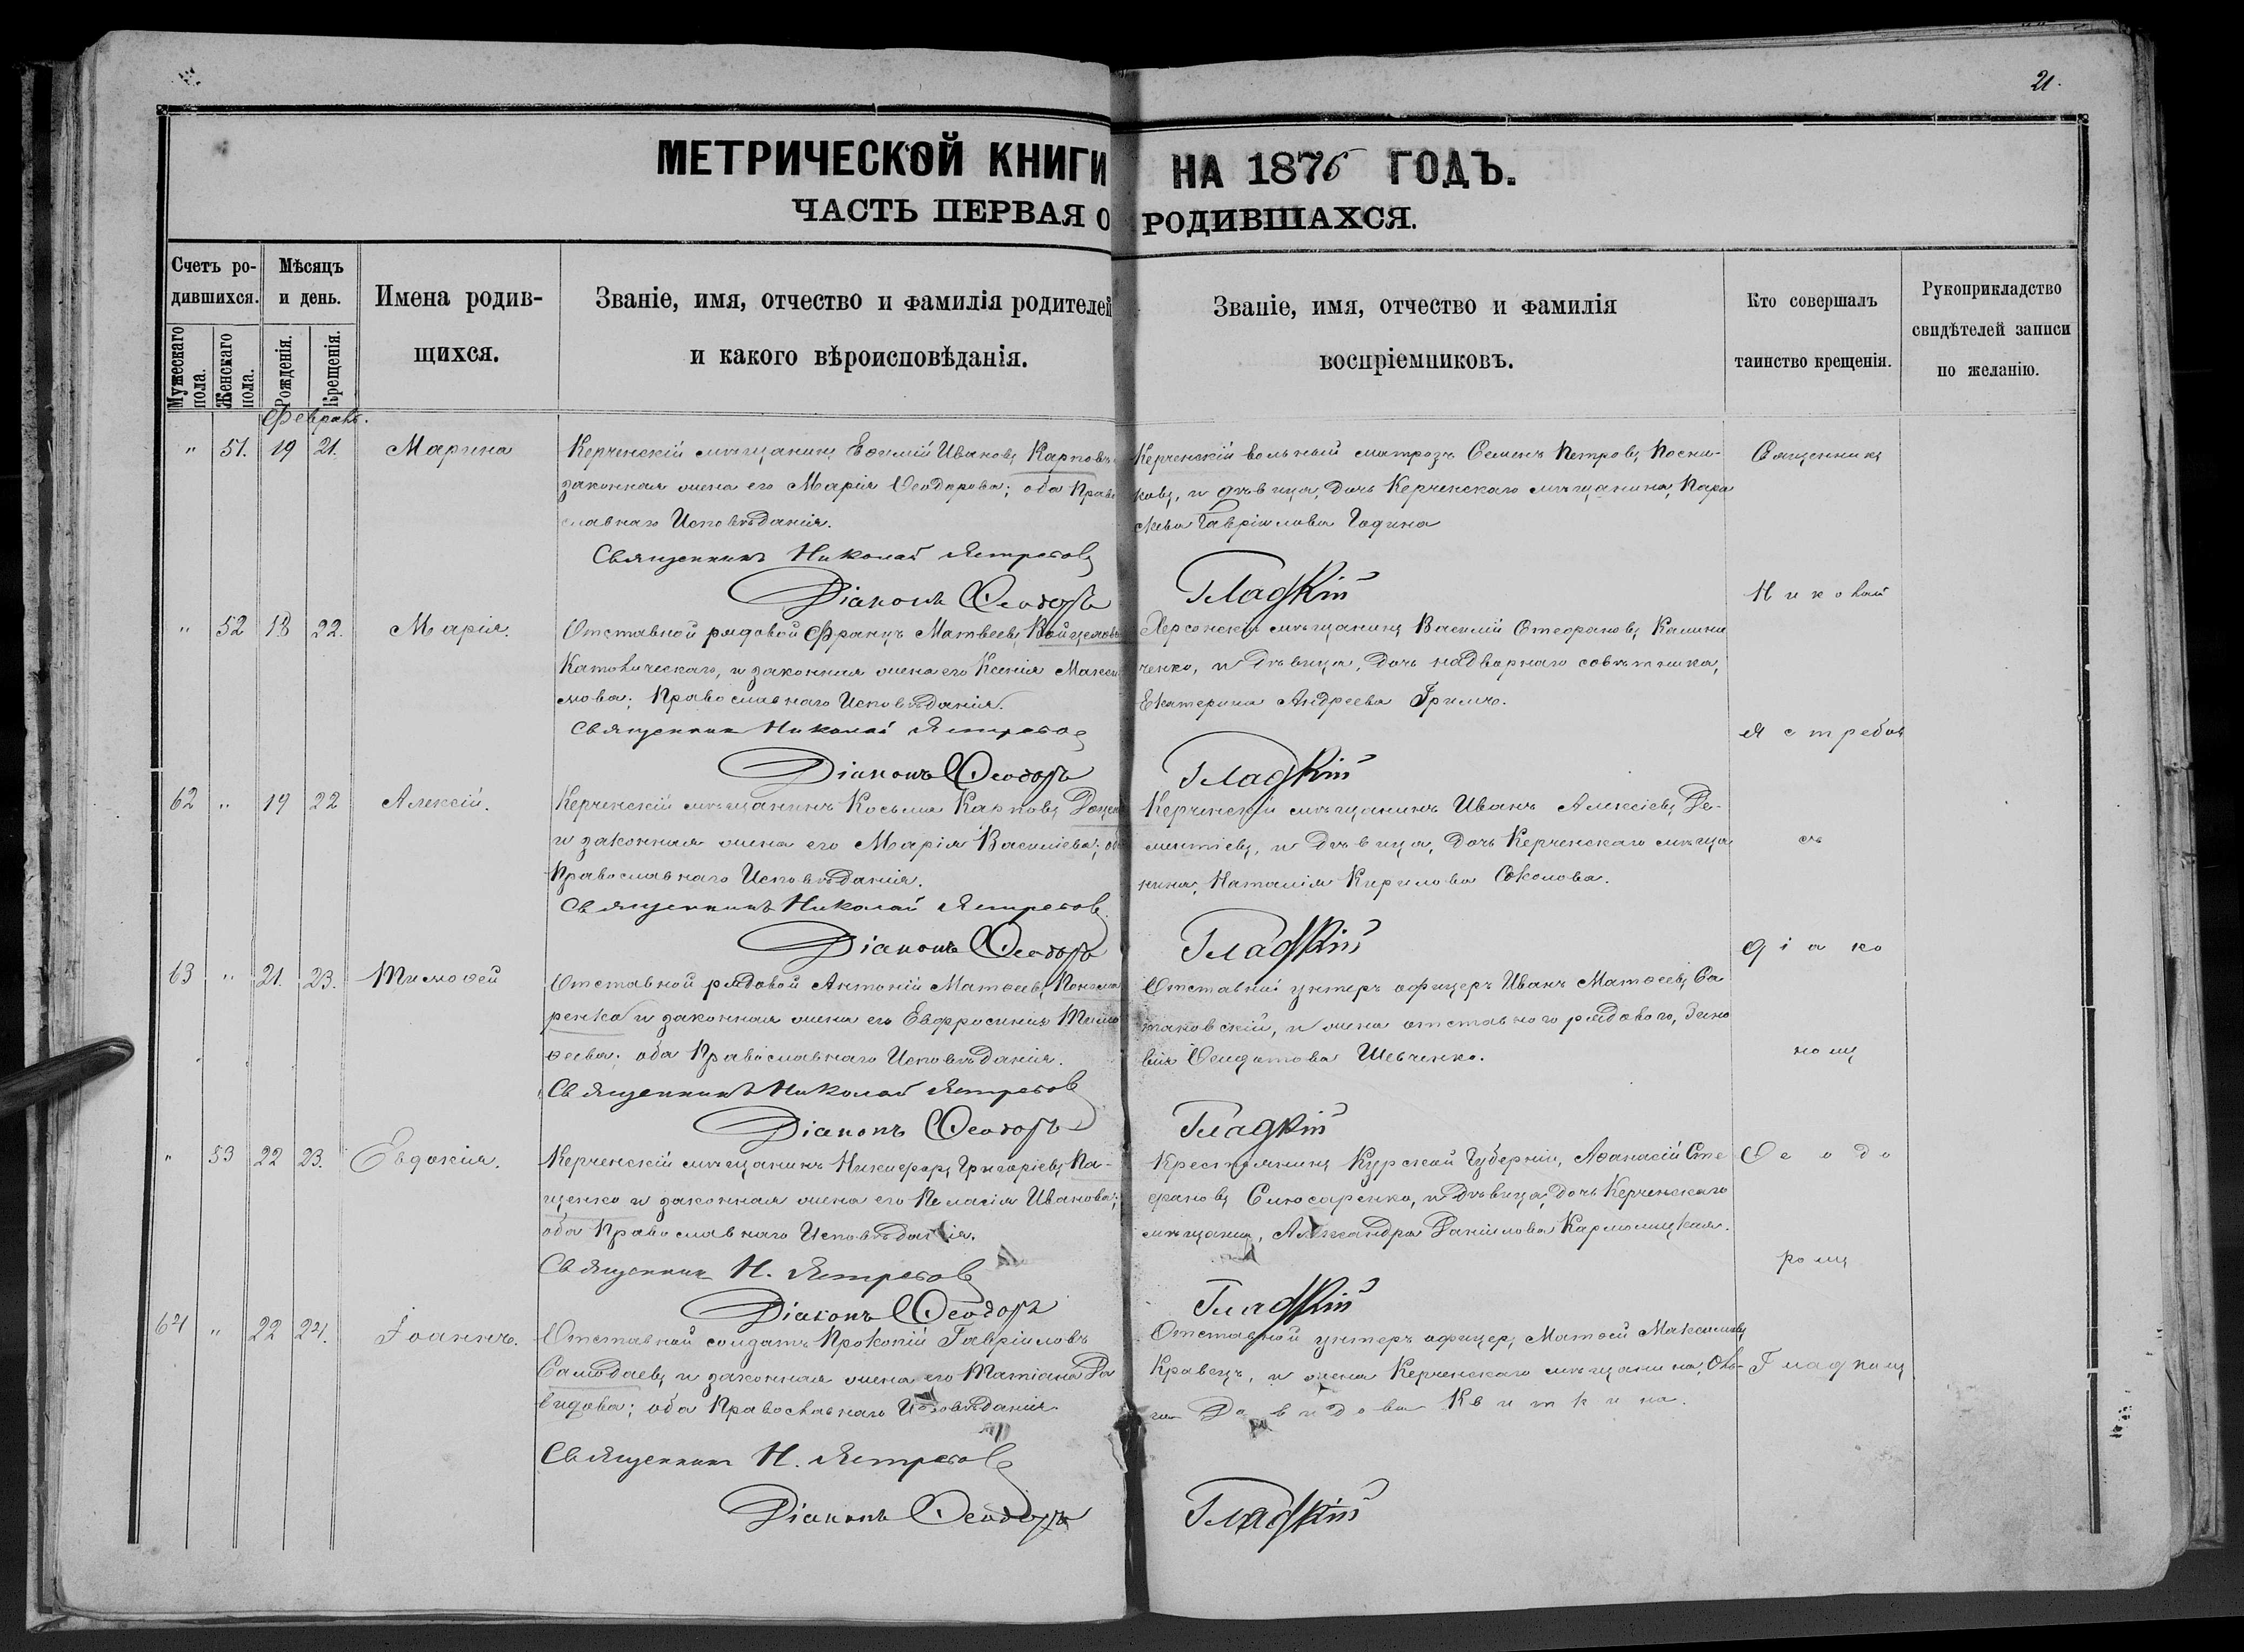 21.
МЕТРИЧЕСКОЙ КНИГИ НА 1876 ГОДЪ.
ЧАСТЬ ПЕРВАЯ О РОДИВШАХСЯ.
Счетъ ро-
дившихся.
Мужескаго пола.
Женскаго пола.
Мѣсяцъ
и день.
Рожденія.
Крещенія.
Имена родив-
щихся.
Званіе, имя, отчество и фамилія родителей
и какого вѣроисповѣданія.
Званіе, имя, отчество и фамилія
воспріемниковъ.
Кто совершалъ
таинство крещенія.
Рукоприкладство
свидѣтелей записи
по желанію.
Февраль.
" 51. 19 21. Марина
Керченскій мѣщанинъ Евѳимій Ивановъ Карповъ
законная жена его Марія Ѳеодорова; оба Право
славнаго Исповѣданія.
Священникъ Николай Ястребовъ
Діаконъ Ѳеодоръ
Керченскій вольный матрозъ Семенъ Петровъ Посни-
ковъ, и дѣвица, дочь Керченскаго мѣщанина, Пара
скева Гавріилова Година
Гладкій
" 52 18 22. Марія.
Отставной рядовой Францъ Матвеевъ Войцеховъ
Католическаго, и законная жена его Ксенія Макси
мова; Православнаго Исповѣданія.
Священник Николай Ястребов
Діаконъ Ѳеодоръ
Херсонскій мѣщанинъ Василій Стефановъ Калини
ченко, и дѣвица, дочь надворнаго совѣтника,
Екатерина Андреева Гримчо.
Гладкій
62 " 19 22 Алексій.
Керченскій мѣщанинъ Косьма Карповъ Доцен
и законная жена его Марія Василіева; об
Православнаго Исповѣданія.
Священникъ Николай Ястребовъ
Діаконъ Ѳеодоръ
Керченскій мѣщанинъ Иванъ Алексіевъ Де-
ментіевъ, и дѣвица, дочь Керченскаго мѣща
нина, Наталія Кирилова Соколова.
Гладкій
63 " 21. 23. Тимоѳей
Отставной рядовой Антоній Матѳеевъ Поном
ренко и законная жена его Евфросинія Тимо
ѳеева; оба Православнаго Исповѣданія.
Священникъ Николай Ястребовъ
Діаконъ Ѳеодоръ
Отставной унтеръ офицеръ Иванъ Матѳеевъ Са
таковскій, и жена отставного рядового, Зино
вія Солдатова Шевченко.
Гладкій
" 53 22 23. Евдокія.
Керченскій мѣщанинъ Никифоръ Григоріевъ Па-
щенко и законная жена его Пелагія Иванова;
оба Православнаго Исповѣданія.
Священник Н. Ястребовъ
Діаконъ Ѳеодоръ
Крестьянинъ Курской Губерніи, Аѳанасій Сте
фановъ Слюсаренко, и дѣвица, дочь Керченскаго
мѣщанина, Александра Даніилова Кармолицкая.
Гладкій
64 " 22 24. Іоаннъ.
Отставной солдатъ Прокопій Гавріиловъ
Самодаевъ и законная жена его Татіана Да
видова; оба Православнаго Исповѣданія.
Священник Н. Ястребовъ
Діаконъ Ѳеодоръ
Отставной унтеръ офицеръ, Матѳей Максимовъ
Кравецъ, и жена Керченскаго мѣщанина,
Давидова Квиткина.
Гладкій
Священникъ
Николай
Ястребов
съ
діако
номъ
Ѳеодо
ромъ
Гладкимъ